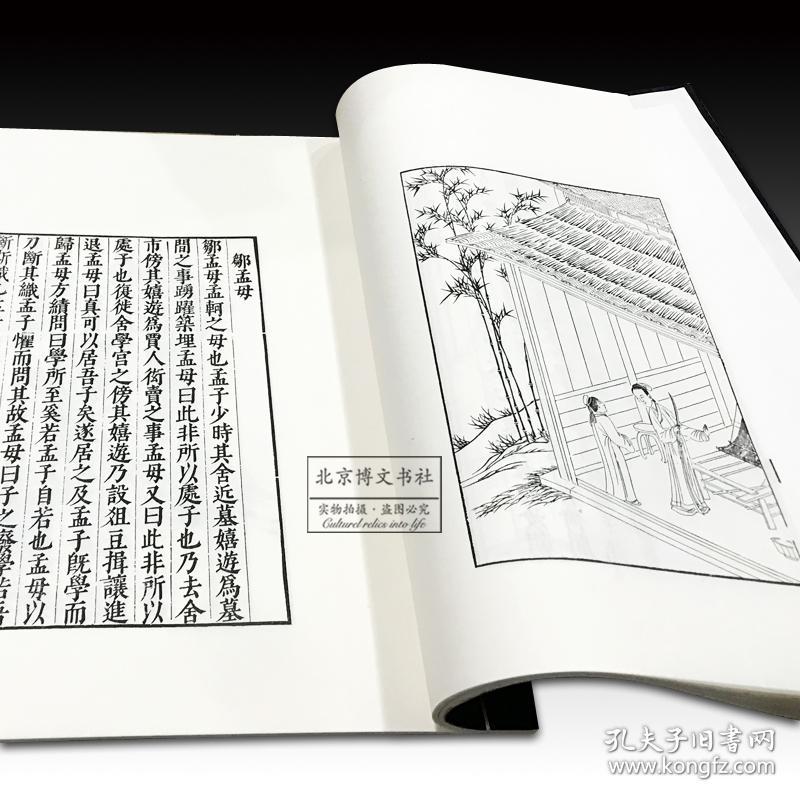 鄒孟母
鄒孟母孟軻之母也孟子少時其舍近墓嬉遊爲墓
間之事踴躍築埋孟母曰此非所以處子也乃去舍
市傍其嬉遊爲賈人衒賣之事孟母又曰此非所以
處子也復徙舍學宮之傍其嬉遊乃設俎豆揖讓進
退孟母曰真可以居吾子矣遂居之及孟子旣學而
歸孟母方績問曰學所至矣若孟子自若也孟母以
刀斷其織孟子懼而問其故孟母曰子之廢學若吾
斷斯織
北京博文书社
实物拍摄·盗图必究
Cultural relics into life
孔夫子旧书网
www.kongfz.com